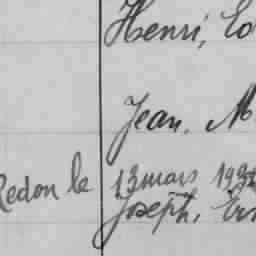 Henri,
Jean. M
Redon le 13 mars
Joseph,